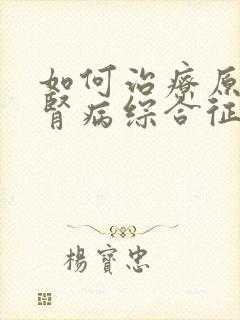 如何治療原
腎病綜合征
楊寶忠